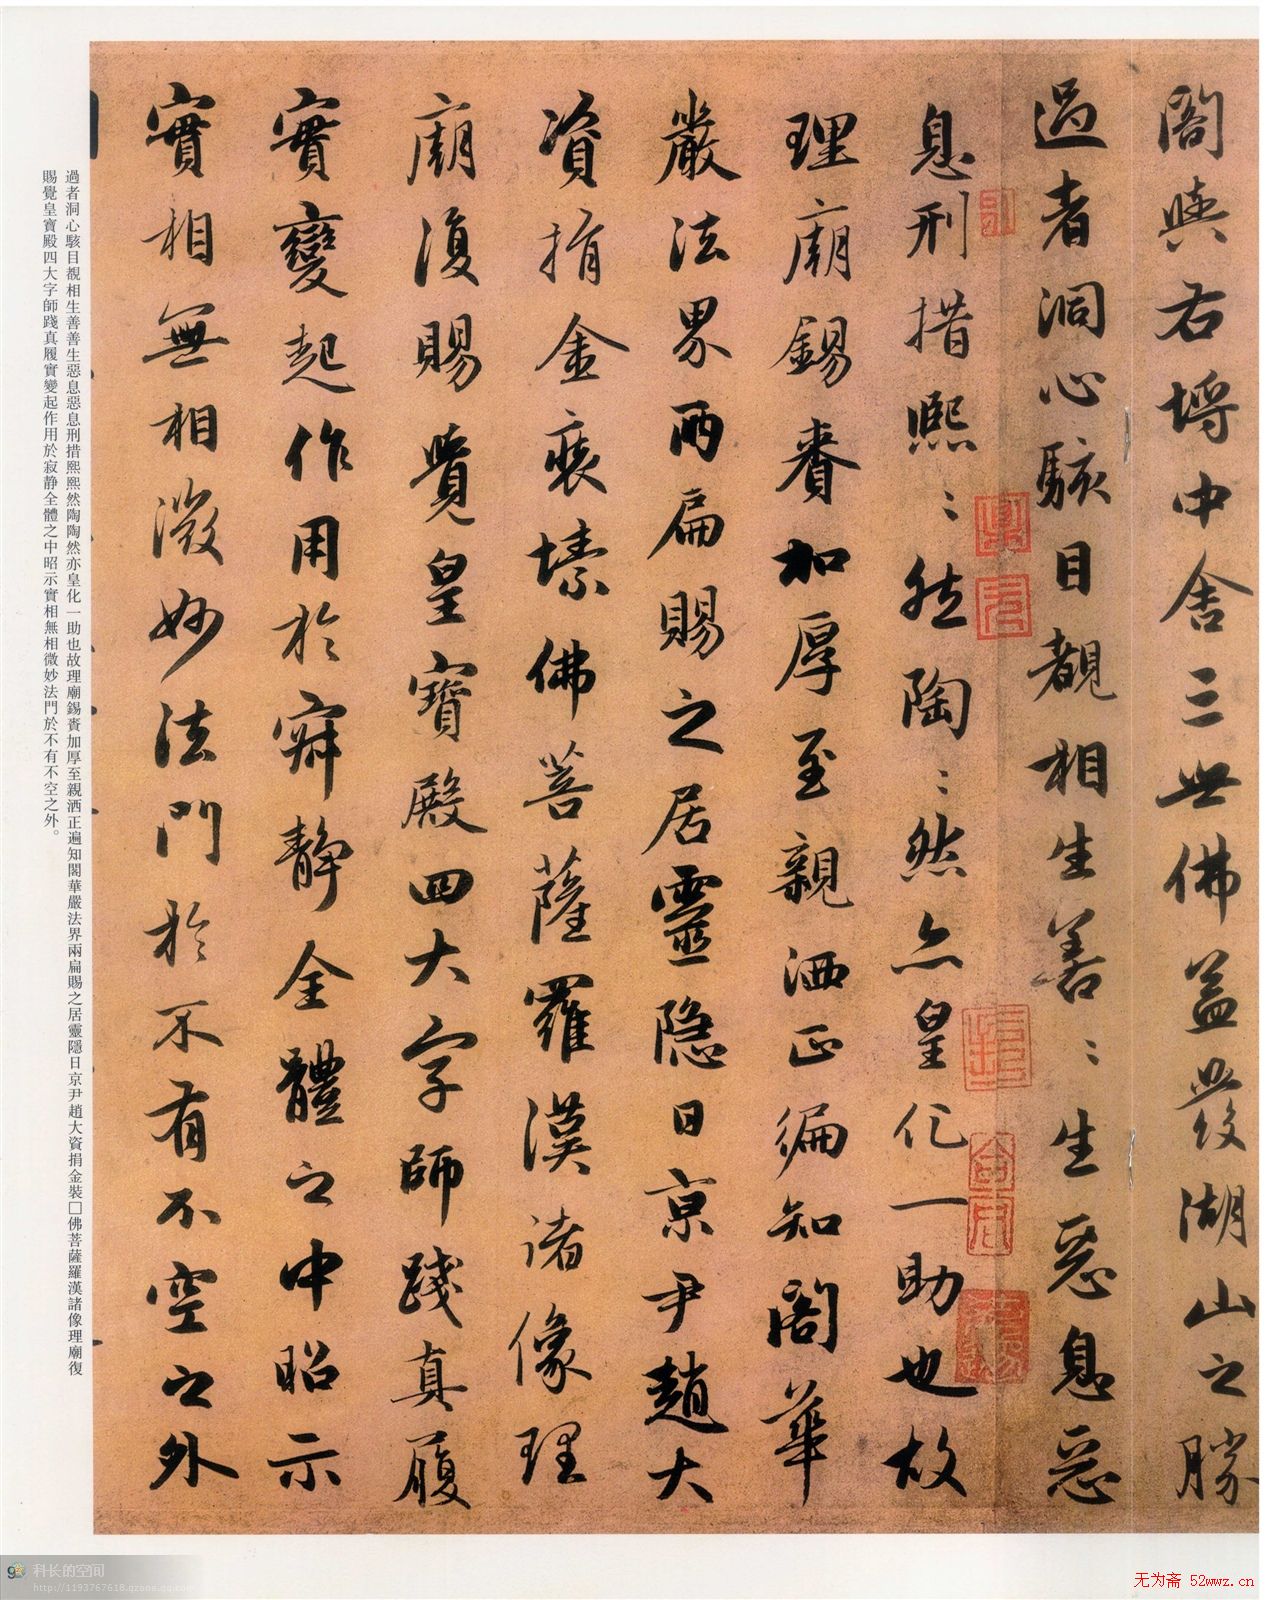 閣與右埒中舍三世佛蓋發湖山之勝
過者洞心駭目覩相生善〻生惡息惡
息刑措熙〻然陶〻然亦皇化一助也故
理廟錫賚加厚至親洒正徧知閣華
嚴法界兩扁賜之居靈隱日京尹趙大
資捐金裝塐佛菩薩羅漢諸像理
廟復賜覺皇寶殿四大字師踐真履
實變起作用於寂靜全體之中昭示
實相無相微妙法門於不有不空之外
過者洞心駭目覩相生善善生惡息惡息刑措熙熙然陶陶然亦皇化一助也故理廟錫賚加厚至親洒正遍知閣華嚴法界兩扁賜之居靈隱日京尹趙大資捐金裝□佛菩薩羅漢諸像理廟復
賜覺皇寶殿四大字師踐真履實變起作用於寂靜全體之中昭示實相無相微妙法門於不有不空之外。
科长的空间
http://1193767618.qzone.qq.com
无为斋 52wwz.cn